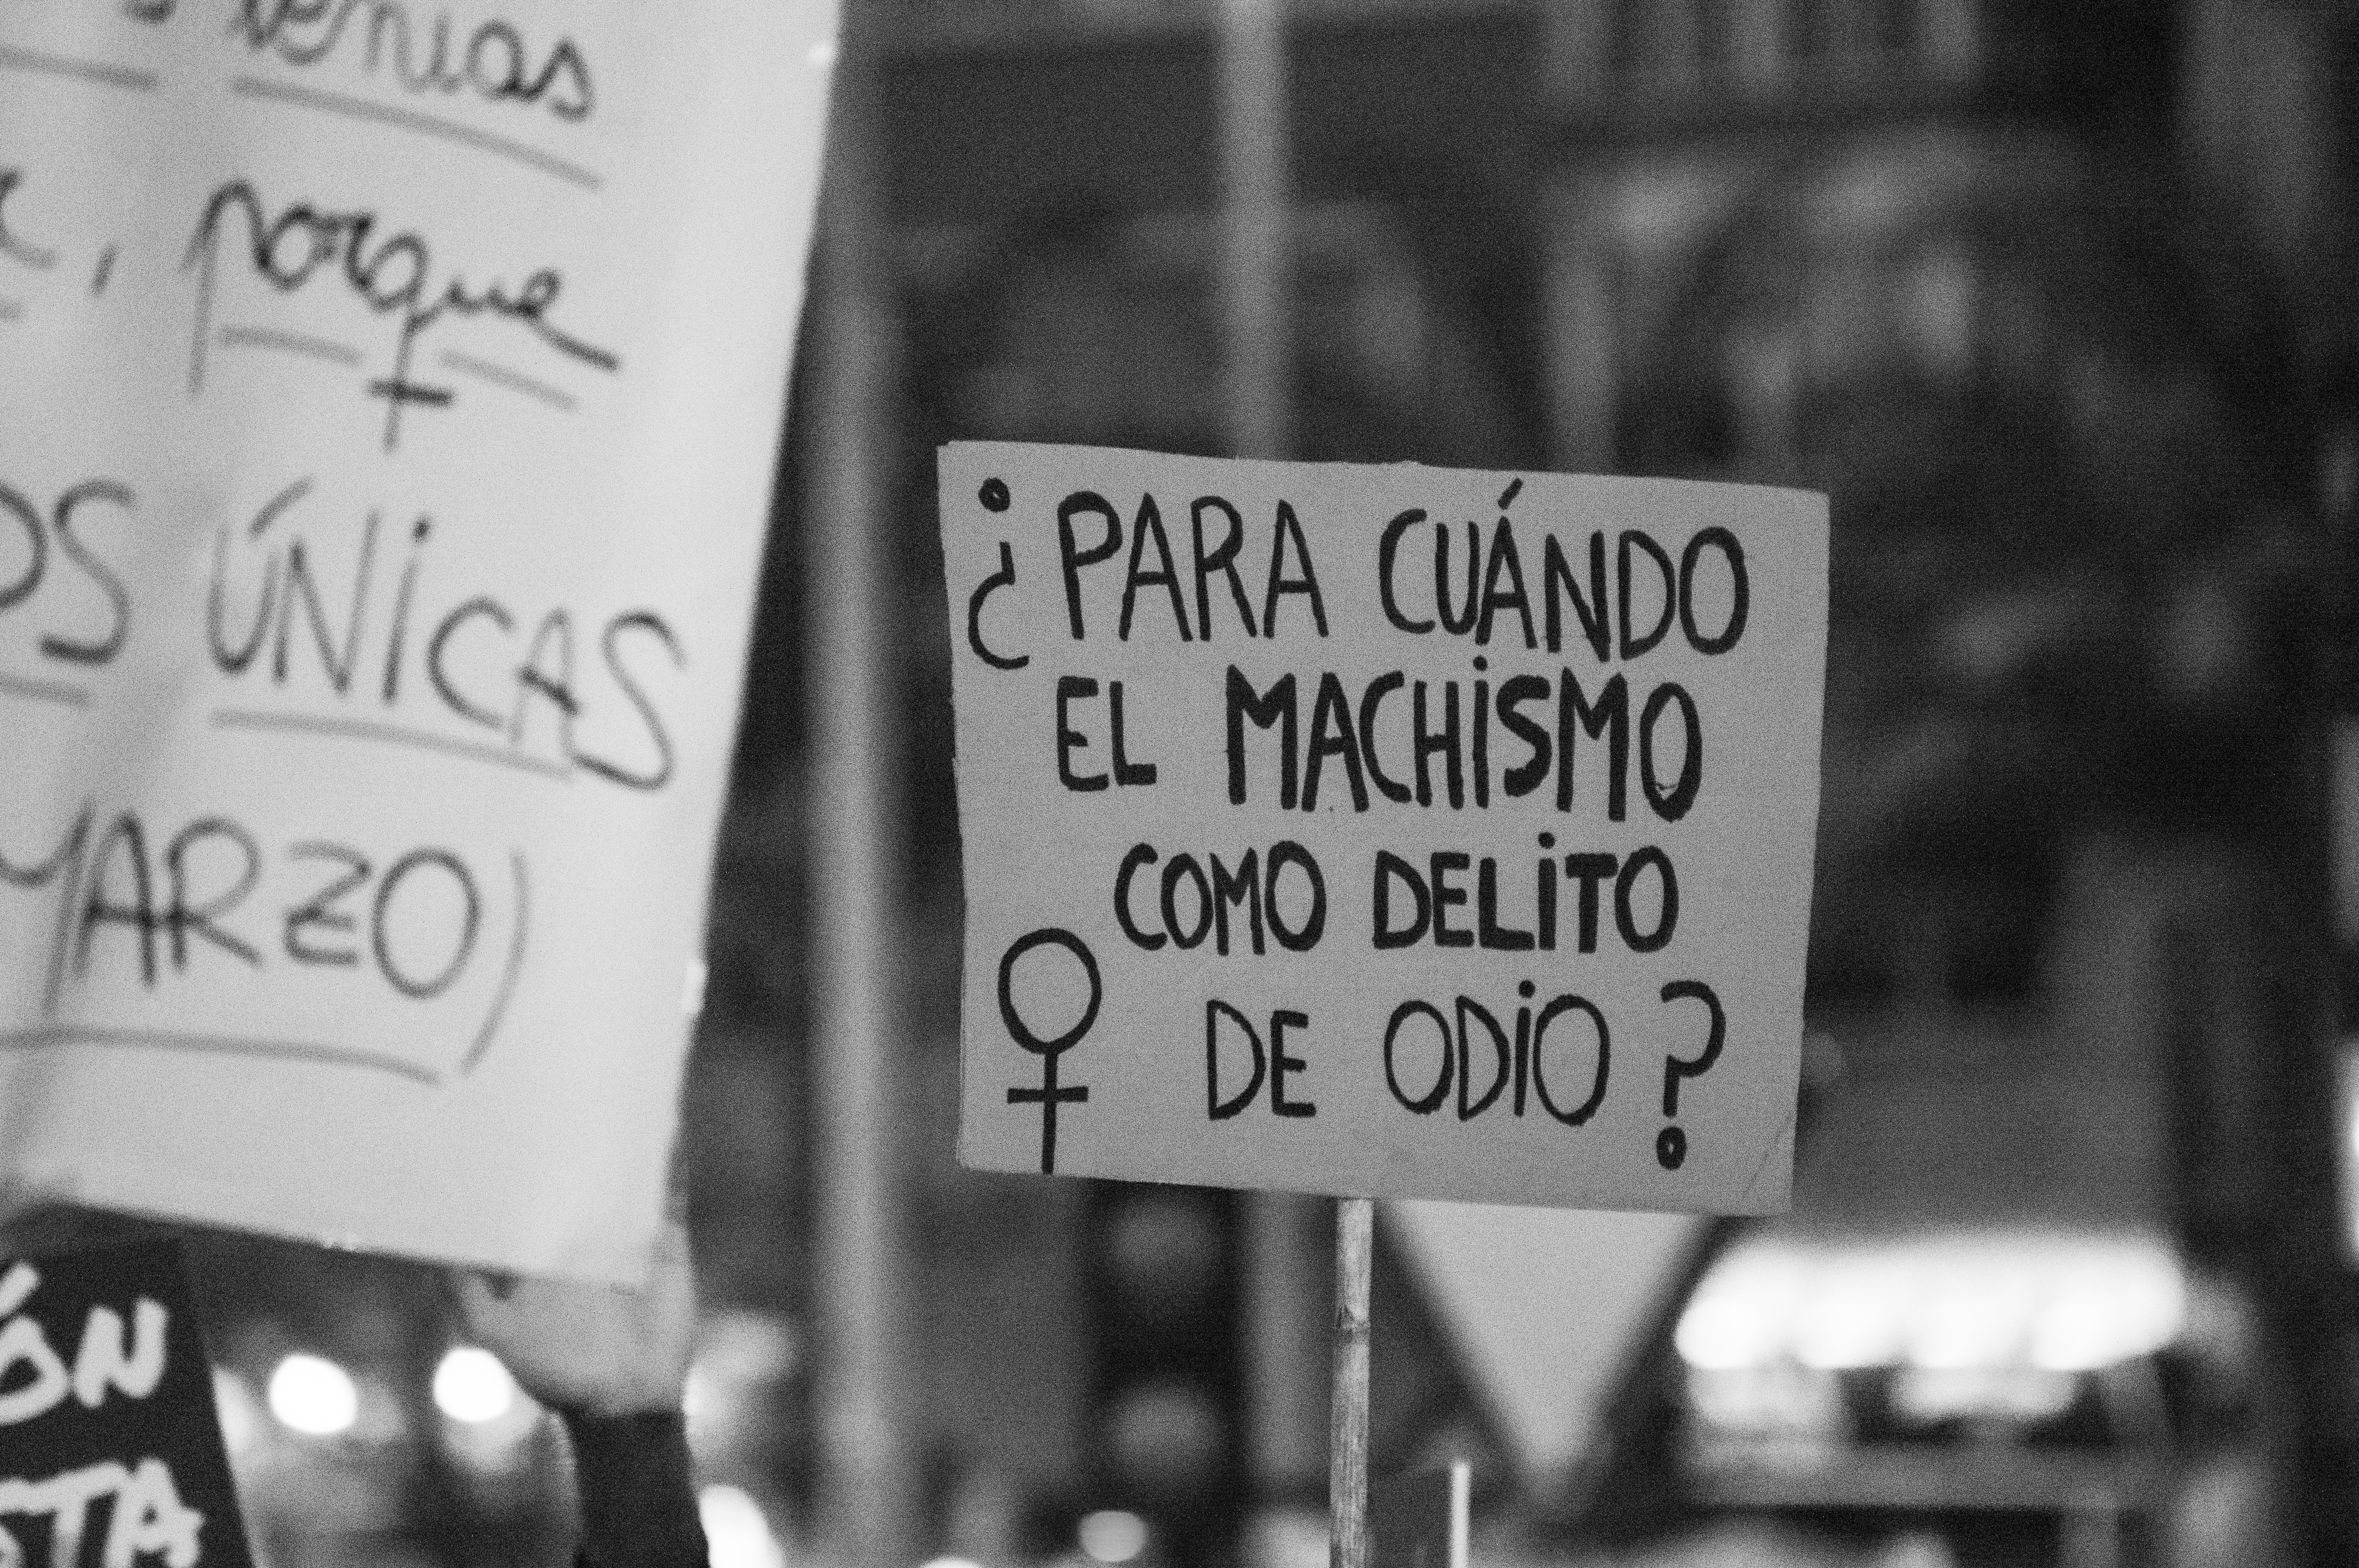 , porque
ÚNICAS
MARZO)
¿PARA CUÁNDO
EL MACHISMO
COMO DELITO
DE ODIO?